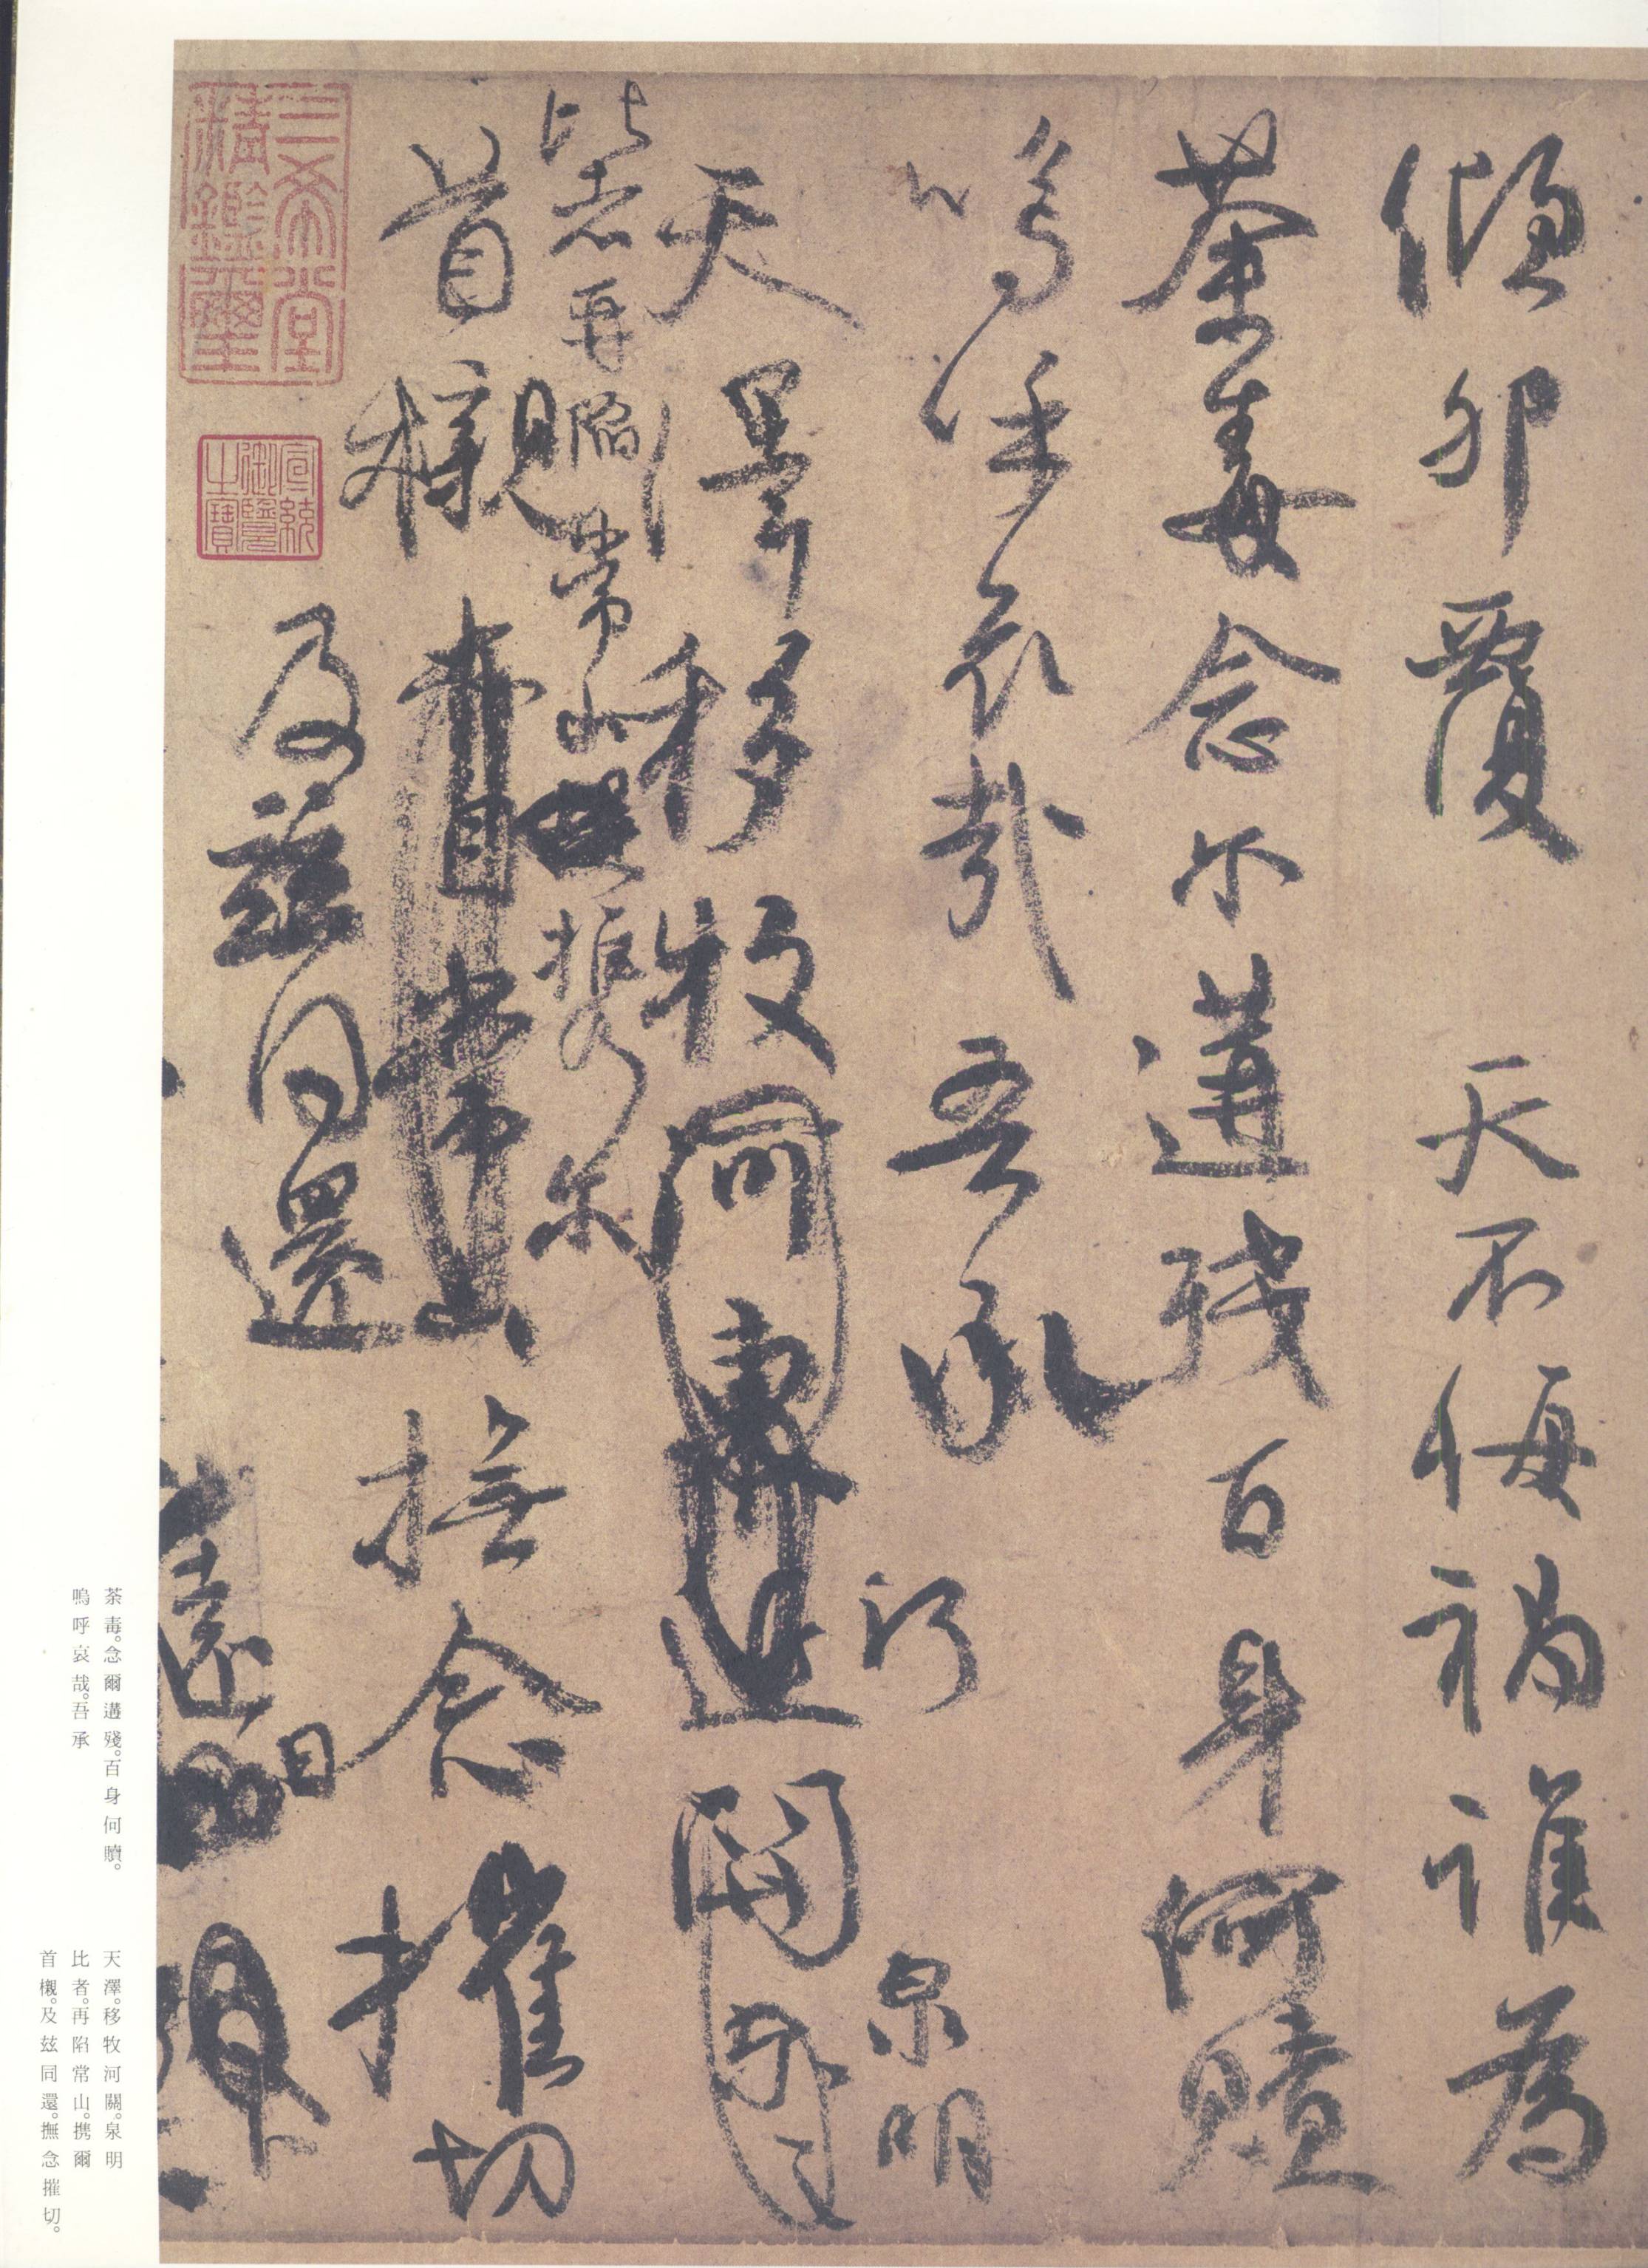 傾卵覆天不悔禍誰為
荼毒念尔遘殘百身何贖
嗚呼哀哉吾承
天澤移牧河關
河
泉明
比者再陷常山携尔
首櫬
常山
撫念摧切
及兹同還
遠日
三希堂
精鑑璽
宣統
御覽
之寶
荼毒。念爾遘殘。百身何贖。
嗚呼哀哉。吾承
天澤。移牧河關。泉明
比者。再陷常山。携爾
首櫬。及玆同還。撫念摧切。